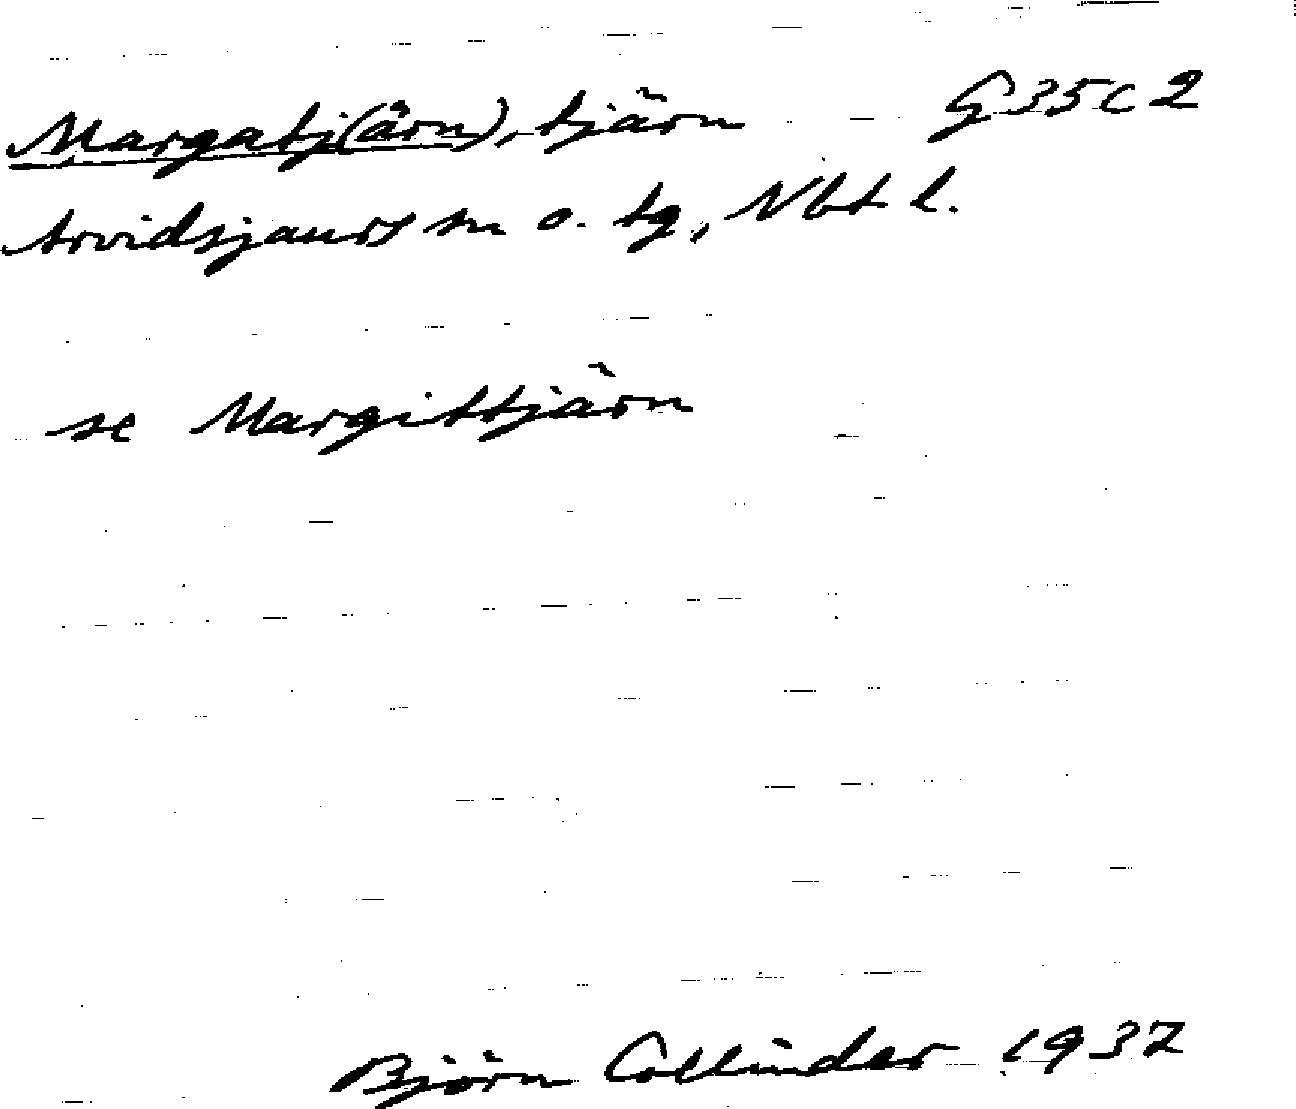 Margatj(ärn), tjärn G35c2
Arvidsjaurs sn o. tg, Nbt l.
se Margittjärn
Björn Collinder 1937